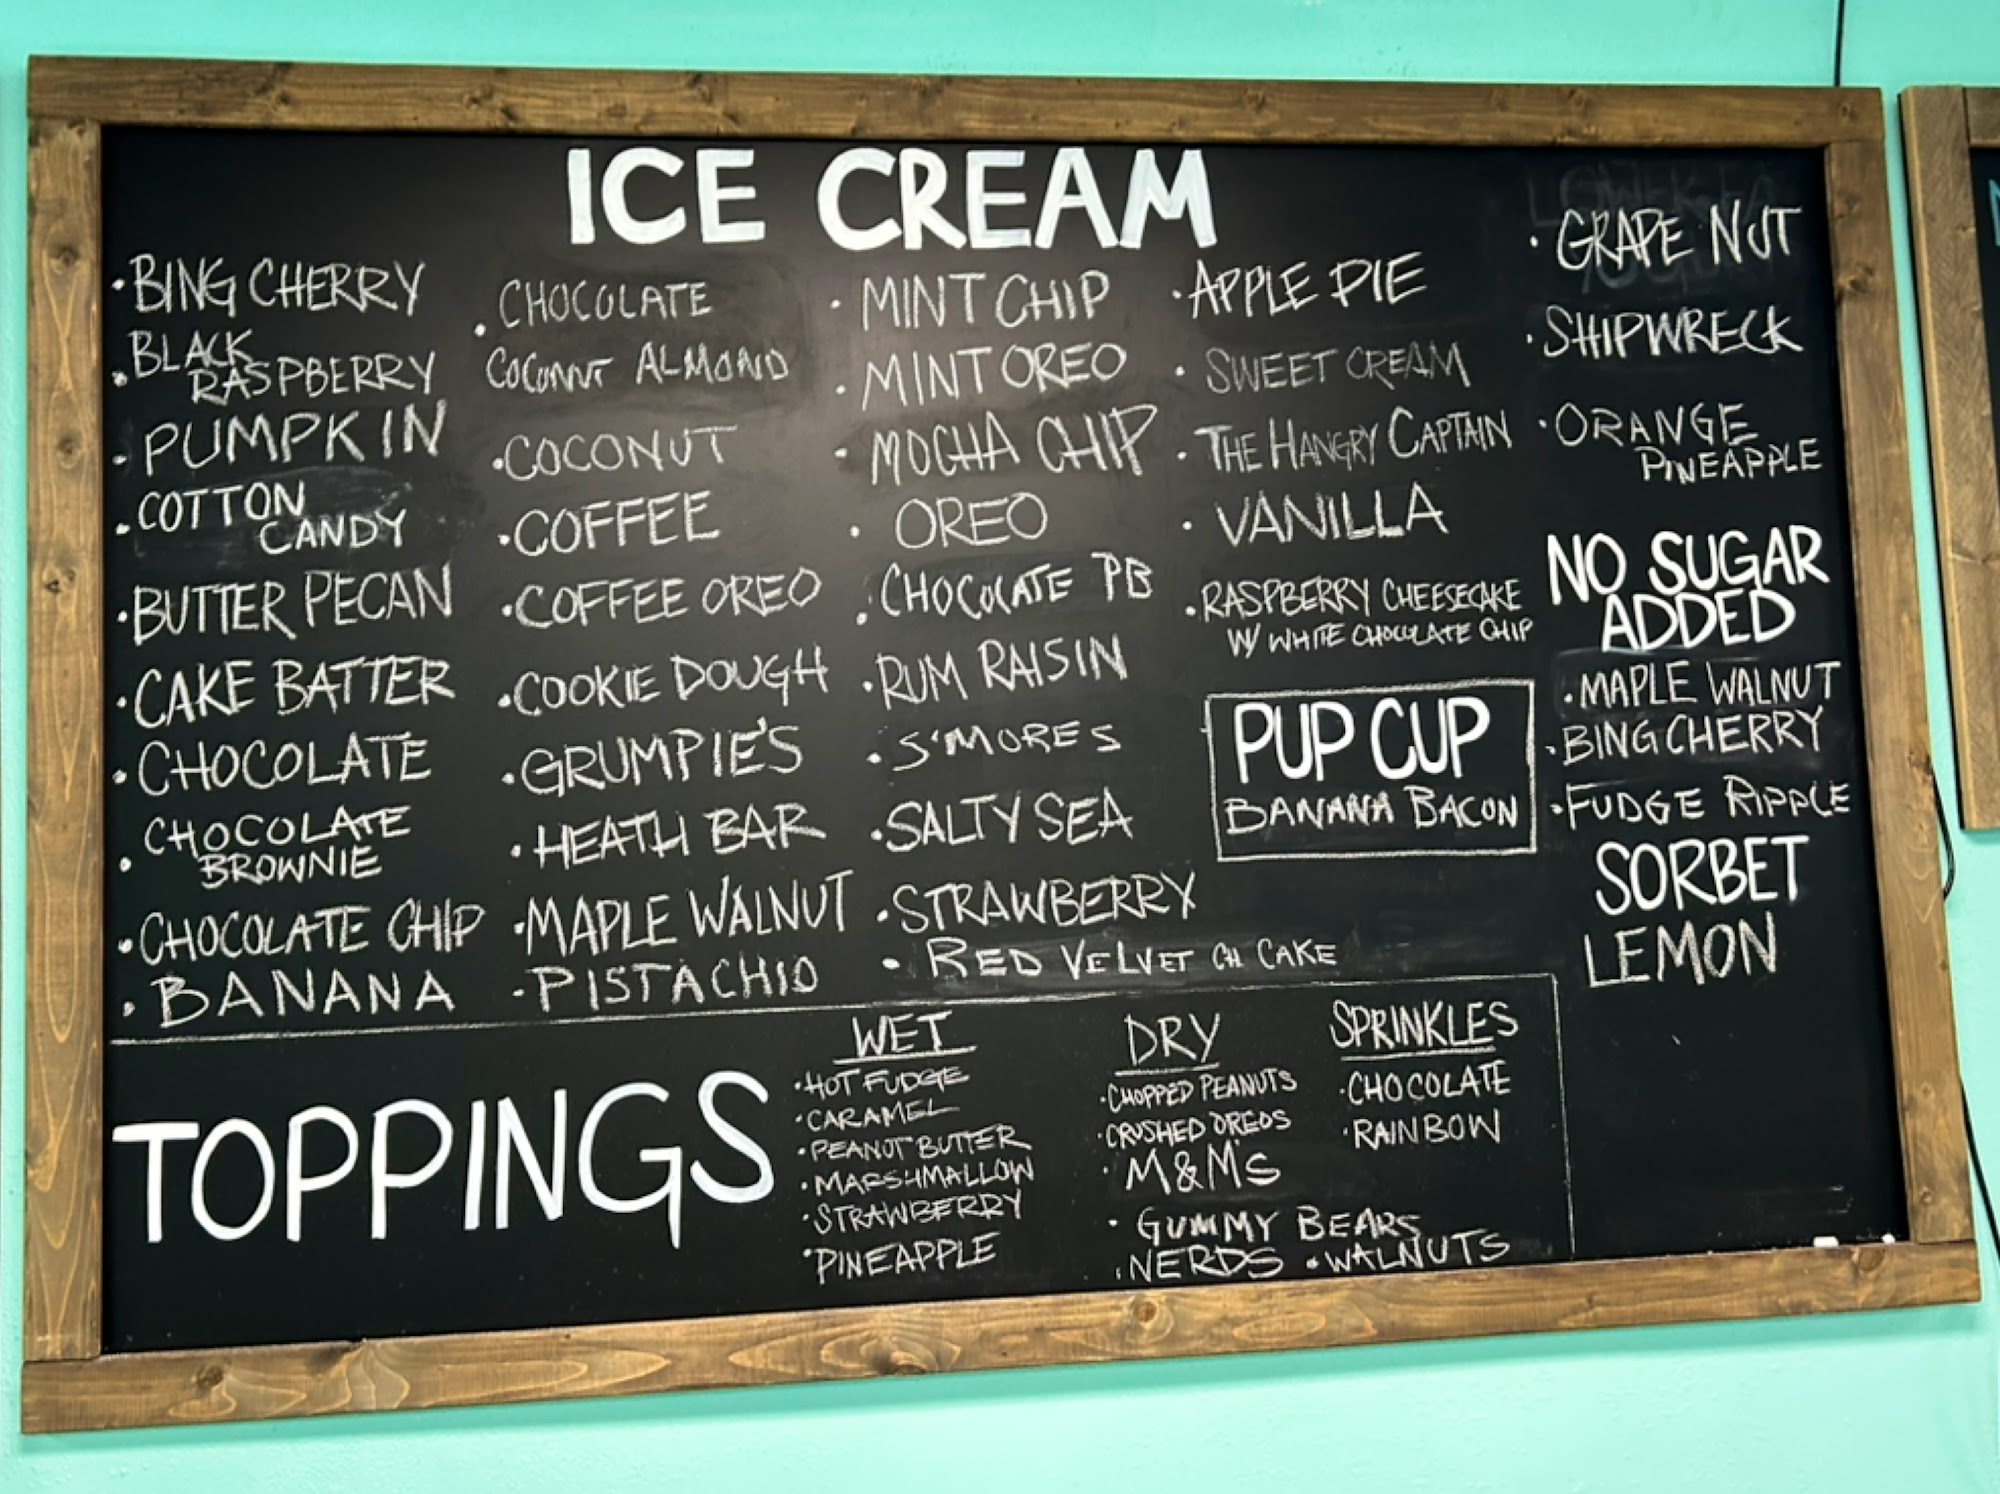 ICE CREAM
· BING CHERRY
· BLACK
RASPBERRY
· PUMPKIN
· COTTON
CANDY
· BUTTER PECAN
· CAKE BATTER
· CHOCOLATE
· CHOCOLATE
BROWNIE
· CHOCOLATE CHIP
· BANANA
· CHOCOLATE
COCONUT ALMOND
· COCONUT
· COFFEE
· COFFEE OREO
· COOKIE DOUGH
· GRUMPIE'S
· HEATH BAR
· MAPLE WALNUT
- PISTACHIO
· MINT CHIP
· MINT OREO
· MOCHA CHIP
· OREO
· CHOCOLATE PB
· RUM RAISIN
· S'MORES
· SALTY SEA
· STRAWBERRY
· RED VELVET CH CAKE
· APPLE PIE
· SWEET CREAM
· THE HANGRY CAPTAIN
· VANILLA
· RASPBERRY CHEESECAKE
W/ WHITE CHOCOLATE CHIP
PUP CUP
BANANA BACON
· GRAPE NUT
· SHIPWRECK
· ORANGE
PINEAPPLE
NO SUGAR
ADDED
· MAPLE WALNUT
· BING CHERRY
· FUDGE RIPPLE
SORBET
LEMON
TOPPINGS
WET
· HOT FUDGE
· CARAMEL
· PEANUT BUTTER
· MARSHMALLOW
· STRAWBERRY
· PINEAPPLE
DRY
· CHOPPED PEANUTS
· CRUSHED OREOS
· M&M'S
· GUMMY BEARS
· NERDS · WALNUTS
SPRINKLES
· CHOCOLATE
· RAINBOW